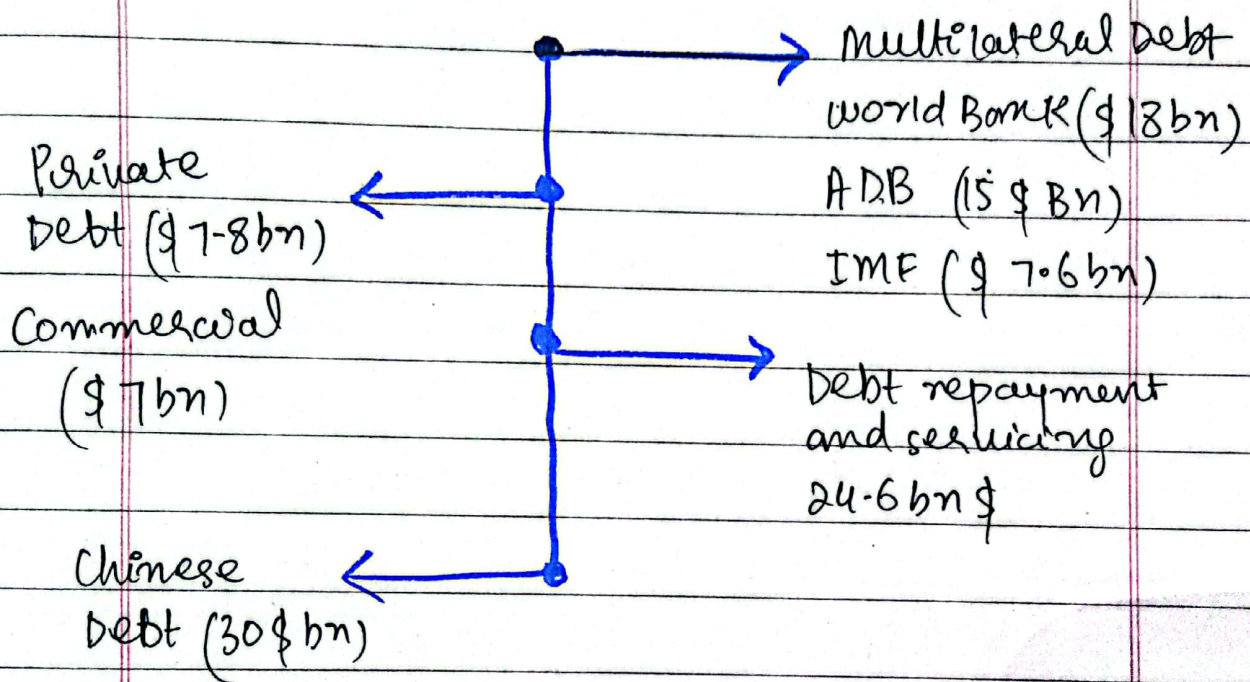 Multilateral Debt
World Bank ($ 18bn)
ADB (15 $ Bn)
IMF ($ 7.6bn)
Private
Debt ($ 7-8bn)
Commercial
($ 7bn)
Debt repayment
and servicing
24.6 bn $
Chinese
Debt (30 $ bn)